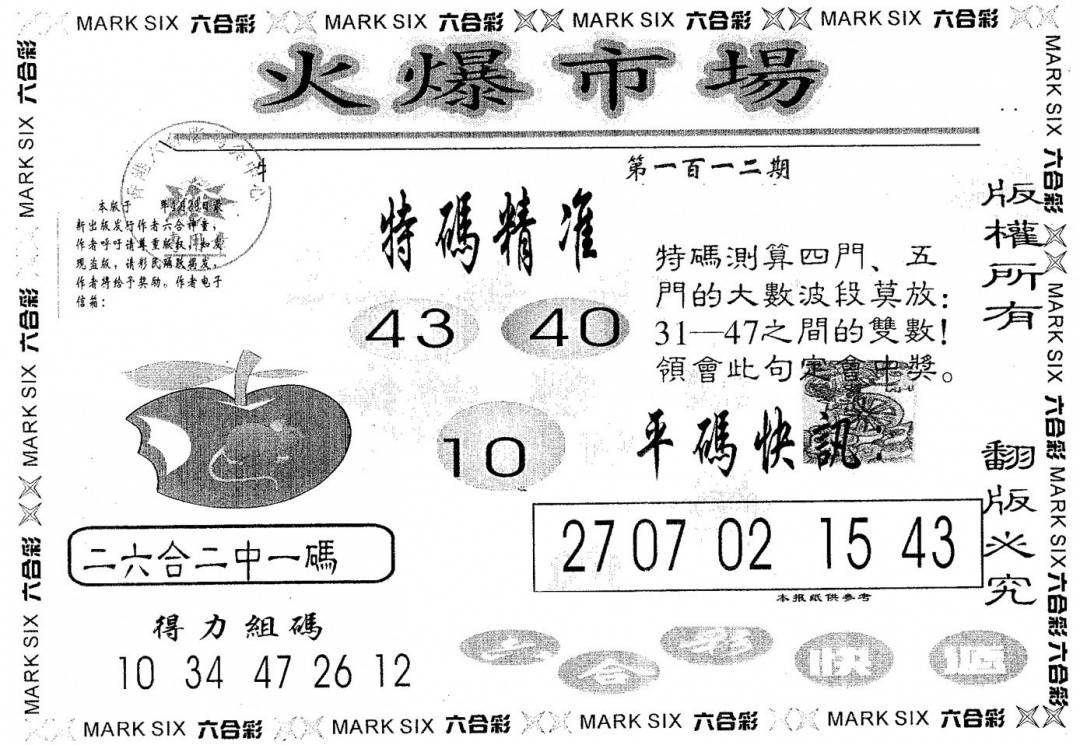 MARK SIX 六合彩 MARK SIX 六合彩 MARK SIX 六合彩 MARK SIX 六合彩
火爆市場
第一百一二期
本版于 年1月20日最
新出版发行作者六合神童，
作者呼吁请尊重版权，如发
现盗版，请彩民踊跃揭发，
作者将给予奖励。作者电子
信箱：
特碼精准
43 40
10
特碼測算四門、五
門的大數波段莫放：
31—47之間的雙數！
領會此句定會中獎。
平碼快訊
27 07 02 15 43
本报紙供參考
二六合二中一碼
得力組碼
10 34 47 26 12
六合彩快遞
版權所有
翻版必究
MARK SIX 六合彩 MARK SIX 六合彩 MARK SIX 六合彩
MARK SIX 六合彩 MARK SIX 六合彩 MARK SIX 六合彩 六合彩
MARK SIX 六合彩 MARK SIX 六合彩 MARK SIX 六合彩 MARK SIX 六合彩